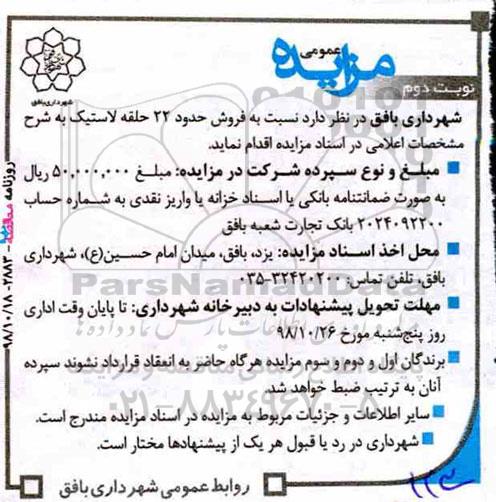 مزایده
عمومی
نوبت دوم
شهرداری بافق
شهرداری بافق در نظر دارد نسبت به فروش حدود ۲۲ حلقه لاستیک به شرح
مشخصات اعلامی در اسناد مزایده اقدام نماید.
مبلغ و نوع سپرده شرکت در مزایده: مبلغ ۵۰,۰۰۰,۰۰۰ ریال
به صورت ضمانتنامه بانکی یا اسناد خزانه یا واریز نقدی به شماره حساب
۲۰۲۴۰۹۲۲۰۰ بانک تجارت شعبه بافق
محل اخذ اسناد مزایده: یزد، بافق، میدان امام حسین(ع)، شهرداری
بافق، تلفن تماس ۳۲۴۲۰۲۰۰-۰۳۵
مهلت تحویل پیشنهادات به دبیرخانه شهرداری: تا پایان وقت اداری
روز پنج‌شنبه مورخ ۹۸/۱۰/۲۶
برندگان اول و دوم و سوم مزایده هرگاه حاضر به انعقاد قرارداد نشوند سپرده
آنان به ترتیب ضبط خواهد شد.
سایر اطلاعات و جزئیات مربوط به مزایده در اسناد مزایده مندرج است.
شهرداری در رد یا قبول هر یک از پیشنهادها مختار است.
روابط عمومی شهرداری بافق
روزنامه مناقصه مزایده - ۲۸۸۳ - ۹۸/۱۰/۱۸
ParsNamadData
۰۲۱-۸۸۳۴۹۶۷۰-۸